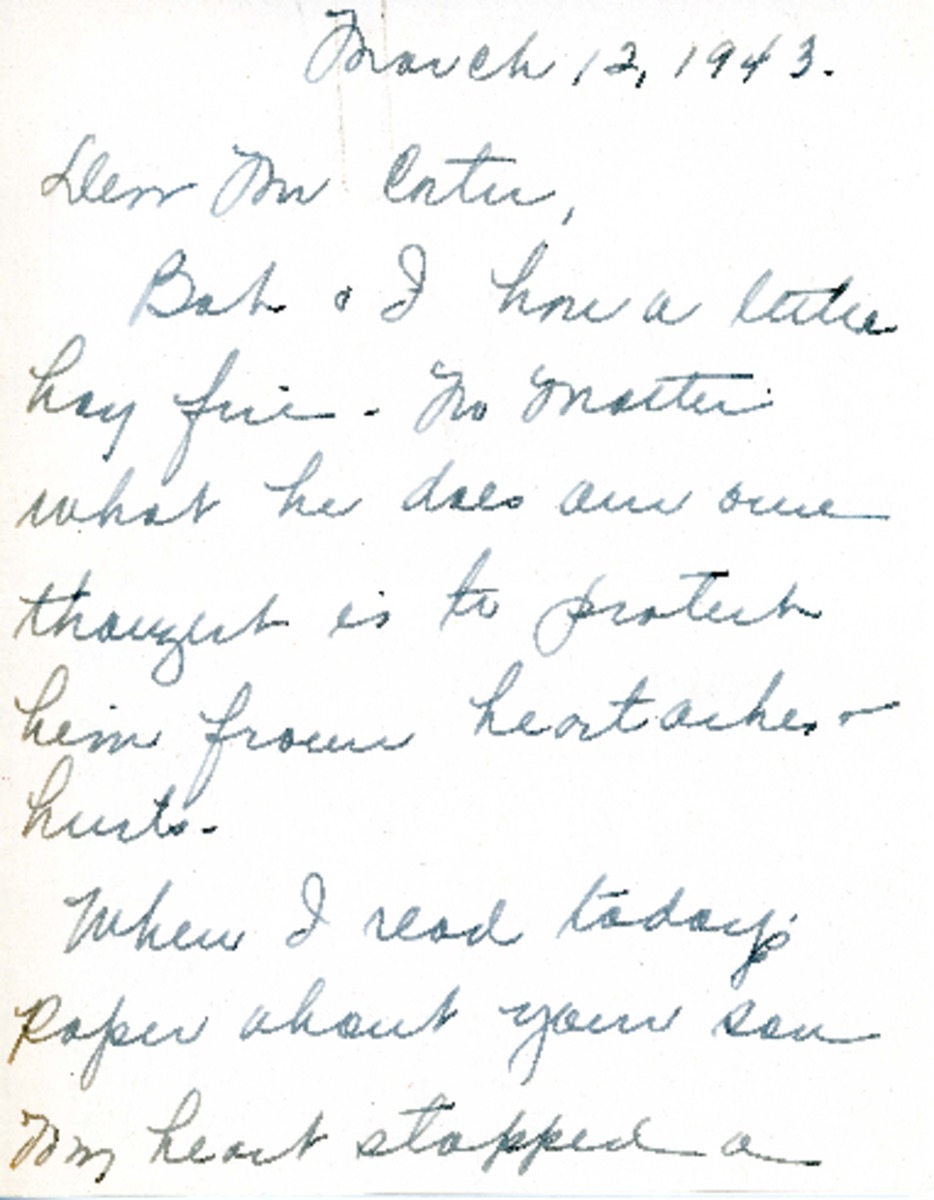 March 12, 1943.
Dear Mr Carter,
Bob & I have a little
boy five. No matter
what he does our one
thought is to protect
him from heartaches &
hurts.
When I read today's
paper about your son
my heart stopped a